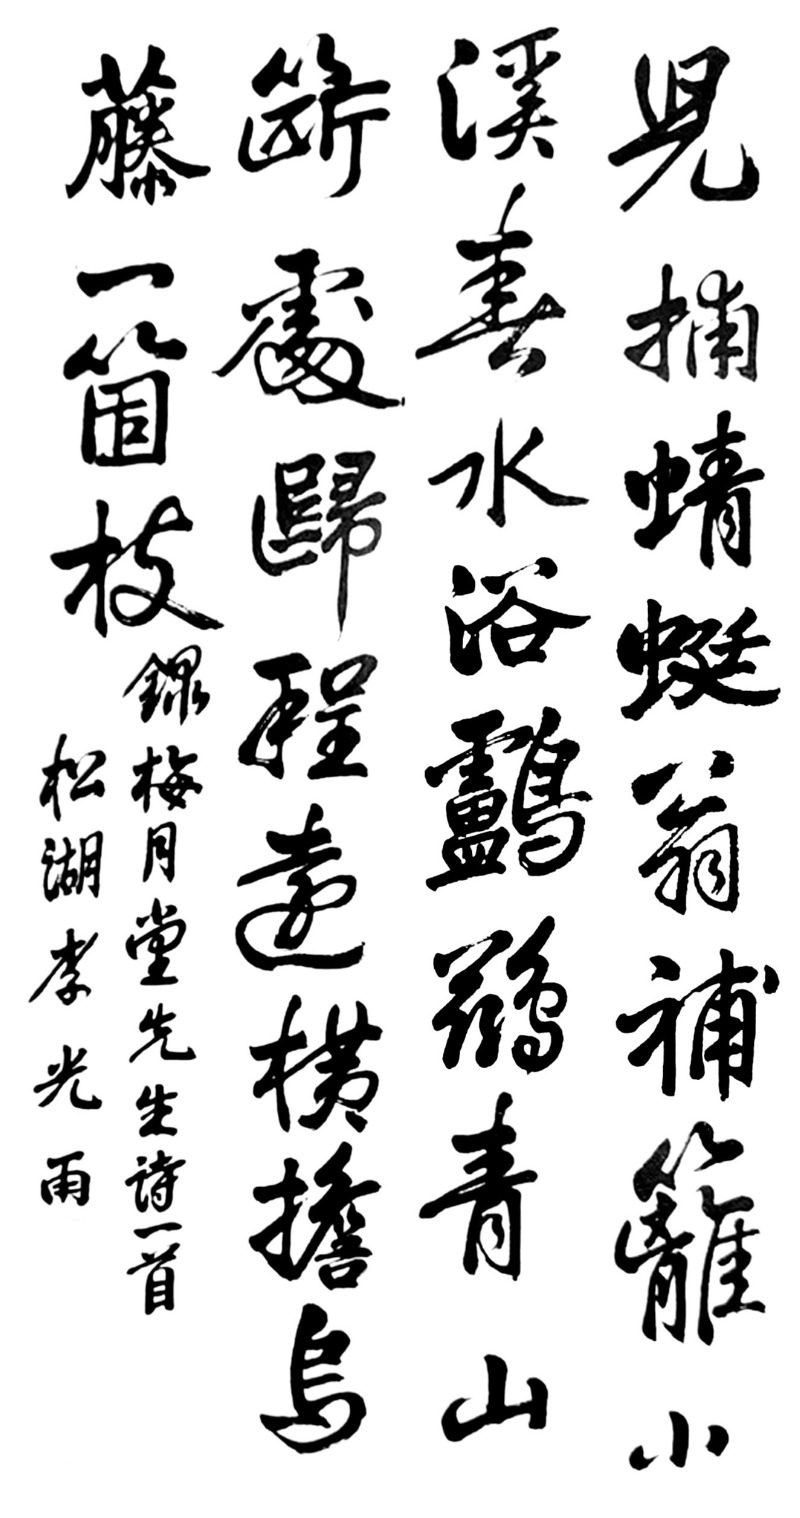 兒捕蜻蜓翁補籬小
溪春水浴鸕鶿青山
斷處歸程遠橫擔烏
藤一箇枝
錄梅月堂先生詩一首
松湖李光雨